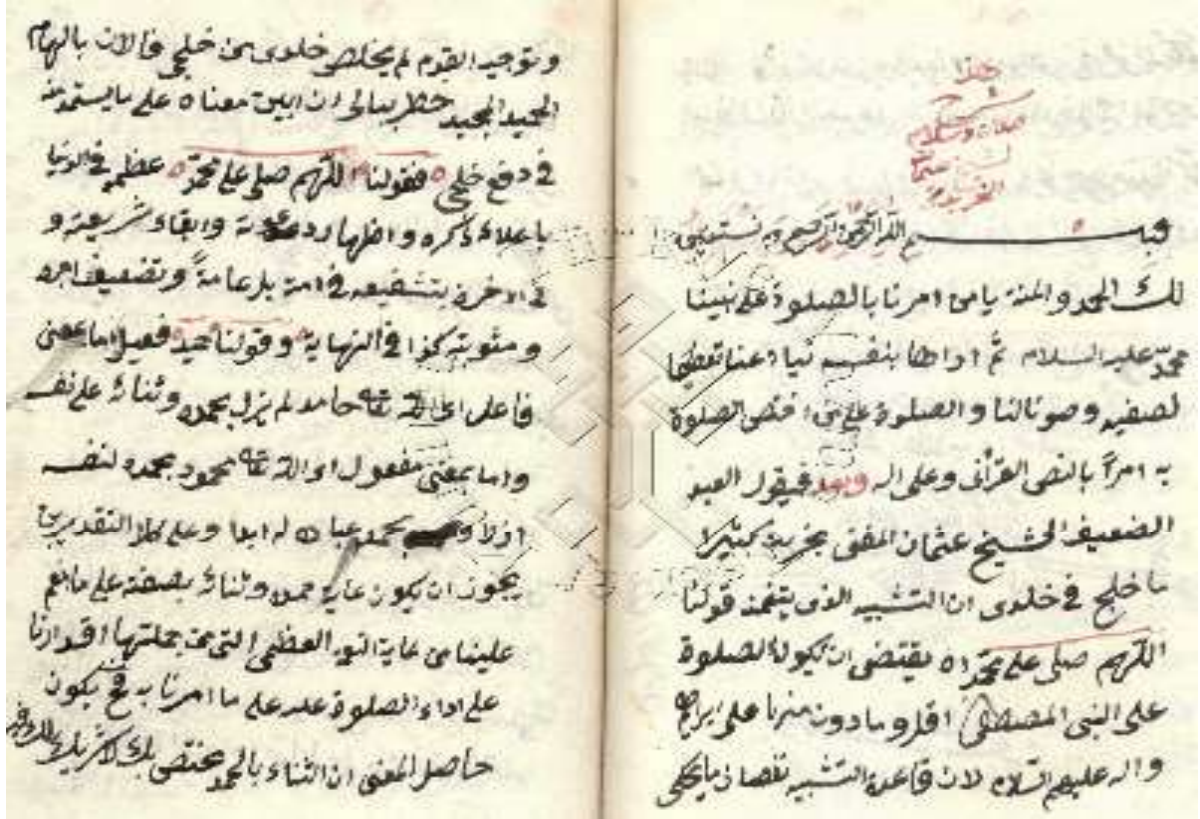 هذا
صلاة وسلام
لشيخ عثمان
بسم الله الرحمن الرحيم وبه نستعين
لك الحمد والمنة يا من امرنا بالصلوة على نبينا
محمد عليه السلام ثم اداها بنفسه نيابة عنا تعظيما
لصفيه وصونا لنا والصلوة على من اختص الصلوة
به امراً بالنص القرآنى وعلى اله وبعد فيقول العبد
الضعيف الشيخ عثمان المفتى كثيرا
ما خلج فى خلدى ان التشبيه الذى يتضمنه قولنا
اللهم صلى على محمد اه يقتضى ان يكون الصلوة
على النبى المصطفى اقل وما دون منها على ابراهيم
واله عليهم السلام لان قاعدة التشبيه نقصان ما يحكى
وتوجيه القوم لم يخلص خلدى عن خلجى فالان بالهام
المجيد خطر ببالى ان ابين معناه على ما يستمد منه
فى دفع خلجى فقولنا اللهم صلى على محمد عظمه فى الدنيا
باعلاء ذكره واظهار دعوته وابقاء شريعته و
فى الاخرة بتشفيعه فى امته بل عامة وتضعيف اجره
ومثوبته كذا فى النهاية وقولنا حميد فعيل اما بمعنى
فاعل اى الله تعالى حامد لم يزل بحمده وثنائه على نفسه
واما بمعنى مفعول اى الله تعالى محمود بحمده لنفسه
ازلا و بحمد عباده له ابدا وعلى كلا التقديرين
يجوز ان يكون غاية حمده وثنائه بصفته على ما انعم
علينا من غاية النعم العظمى التى من جملتها اقدارنا
على اداء الصلوة عليه على ما امرنا به فح يكون
حاصل المعنى ان الثناء بالحمد مختص بك لا شريك لك